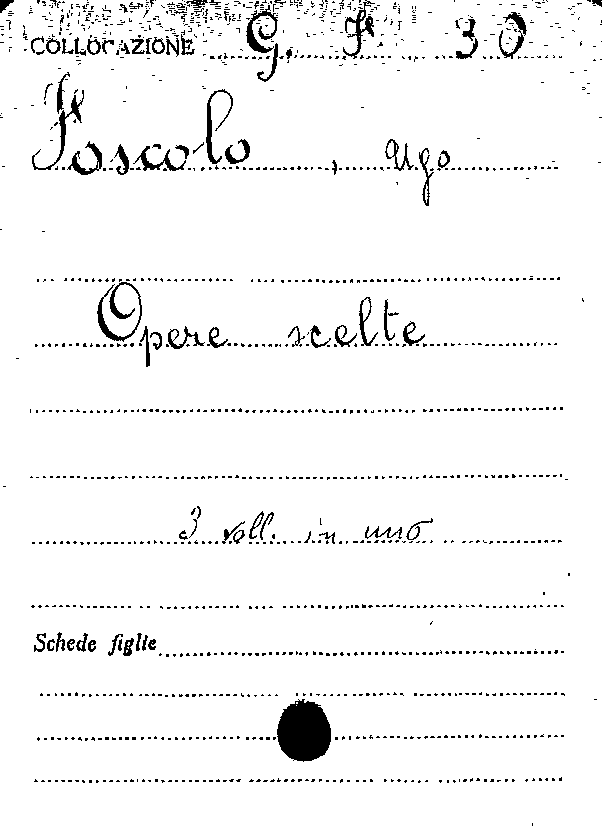 COLLOCAZIONE G. F. 30
Foscolo, Ugo
Opere scelte
3 voll. in uno
Schede figlie